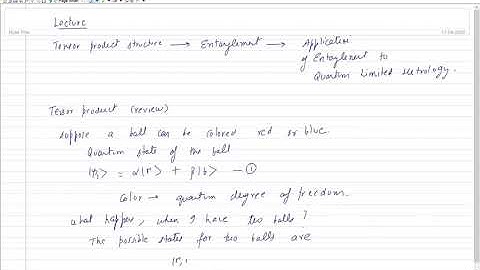 Lecture
Tensor product structure → Entanglement → Application
of Entanglement to
Quantum Limited Metrology.
Tesor product (review)
suppose a ball can be colored red or blue.
Quantum state of the ball
= α|r> + β|b> — ①
Color → quantum degree of freedom.
what happens, when I have two balls?
The possible states for two balls are
|r,